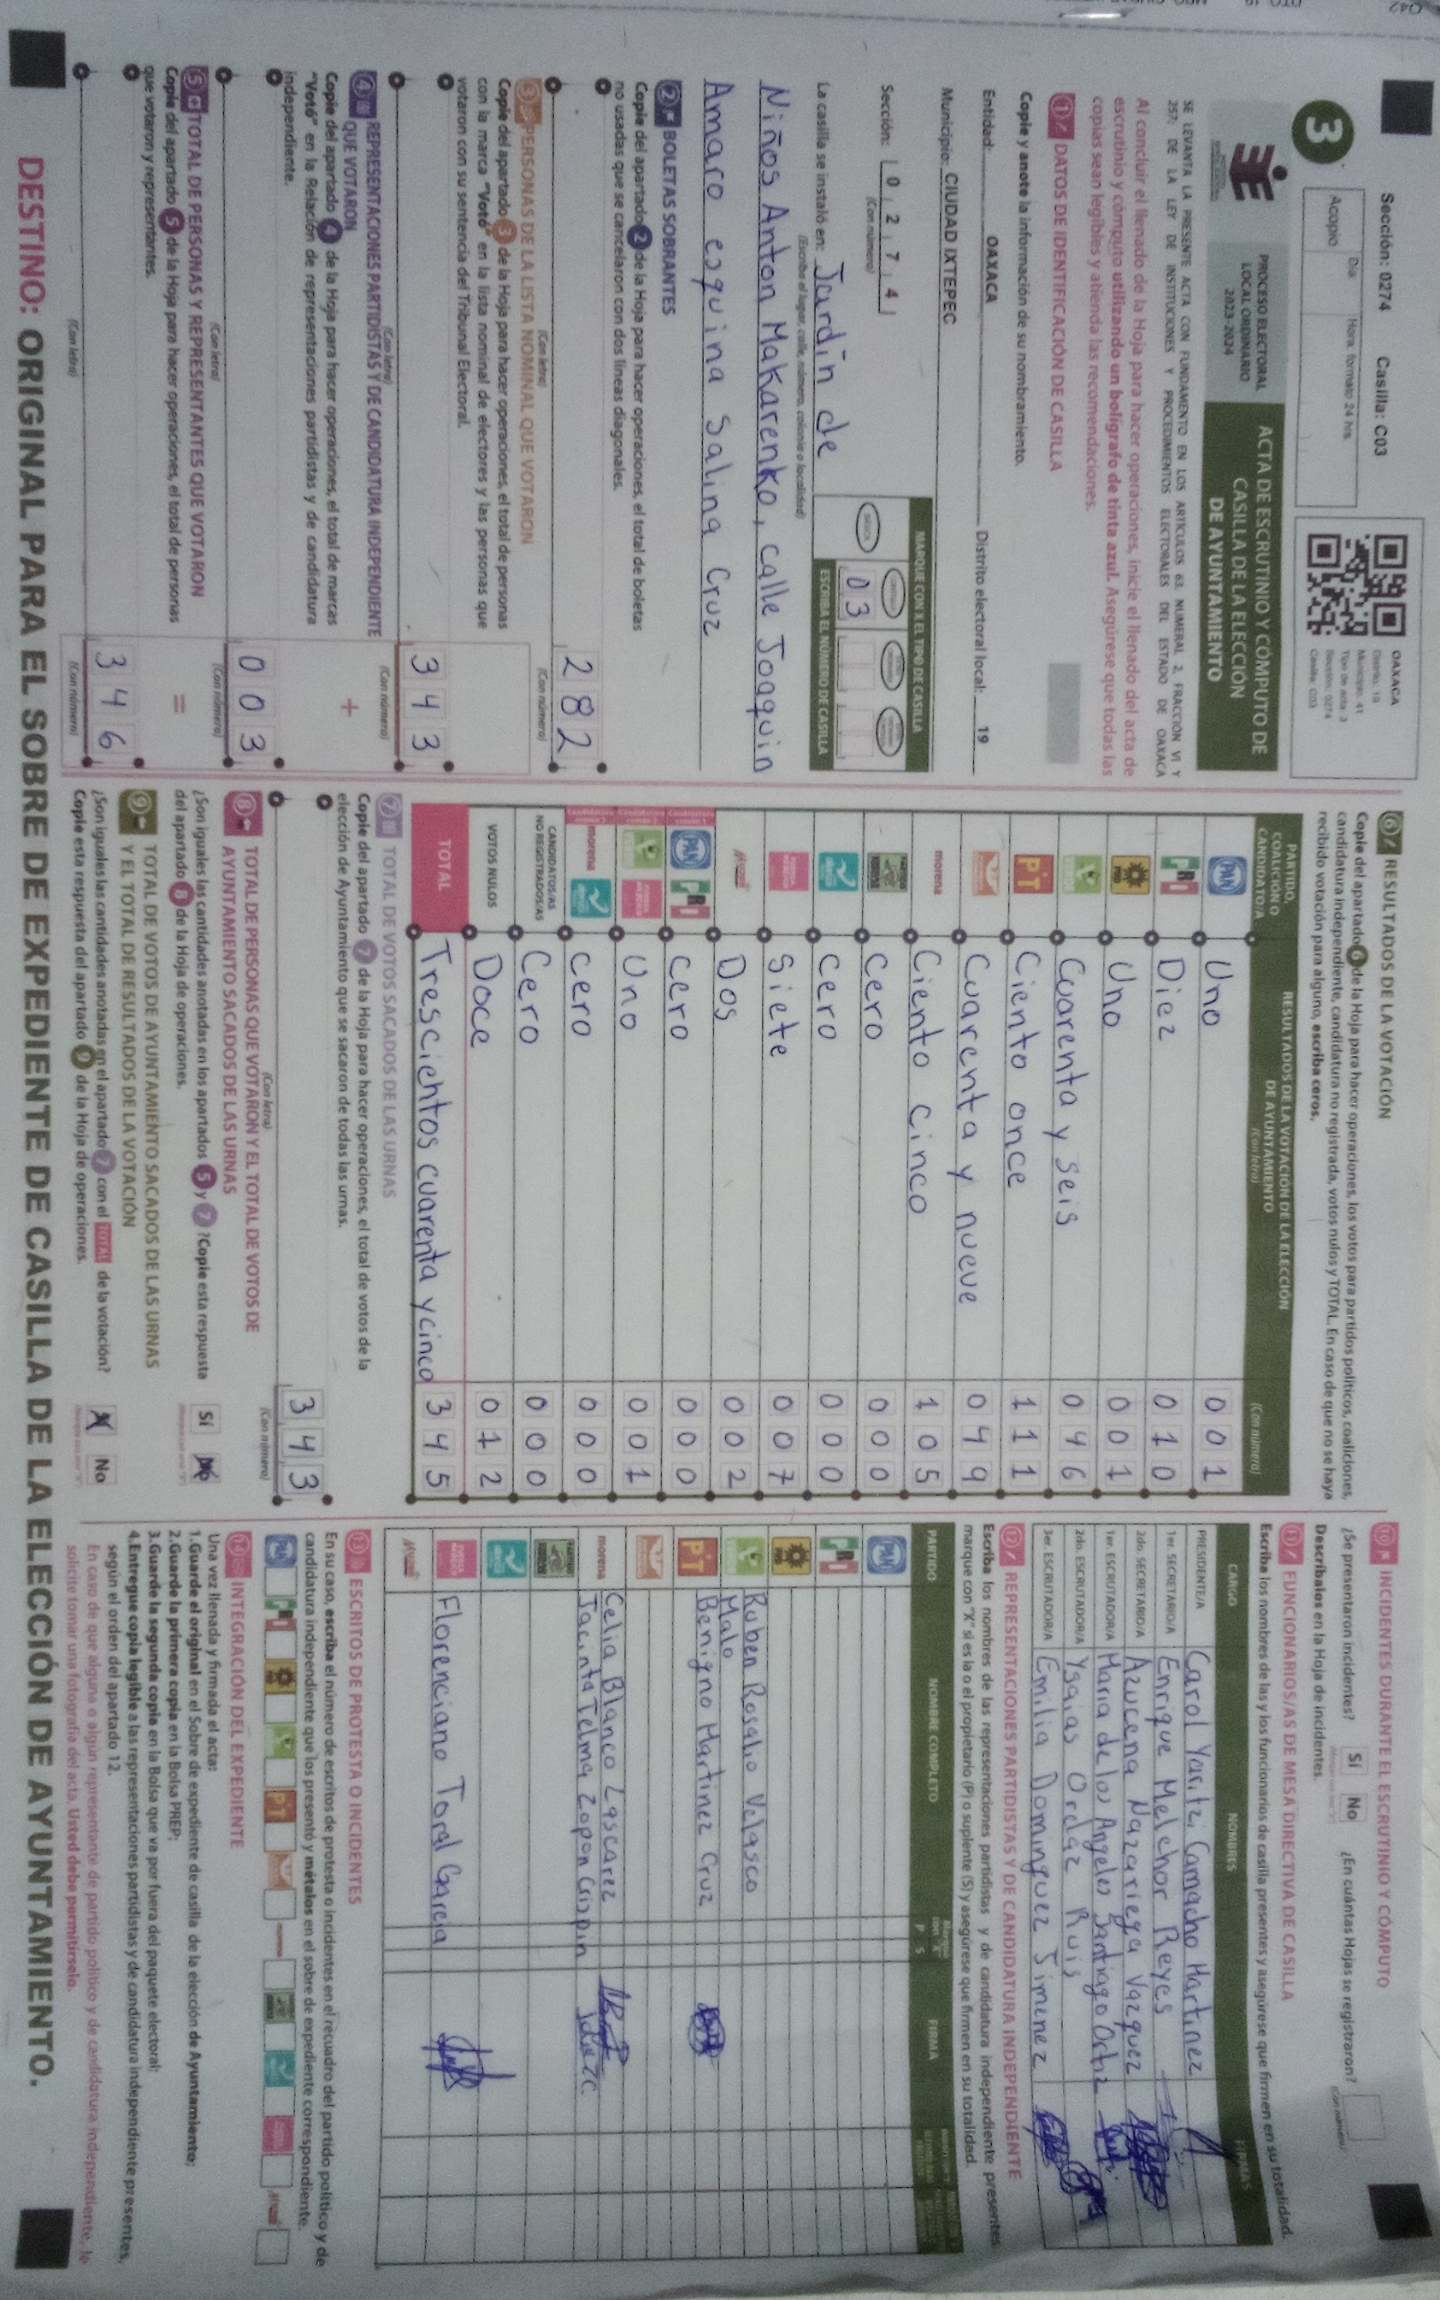 Sección: 0274 Casilla: C03
3
Acopio
Día
Hora: formato 24 hrs.
OAXACA
Distrito: 19
Municipio: 41
Tipo de acta: 3
Sección: 0274
Casilla: C03
PROCESO ELECTORAL
LOCAL ORDINARIO
2023-2024
ACTA DE ESCRUTINIO Y CÓMPUTO DE
CASILLA DE LA ELECCIÓN
DE AYUNTAMIENTO
SE LEVANTA LA PRESENTE ACTA CON FUNDAMENTO EN LOS ARTÍCULOS 63, NUMERAL 2, FRACCIÓN VI Y
257; DE LA LEY DE INSTITUCIONES Y PROCEDIMIENTOS ELECTORALES DEL ESTADO DE OAXACA
Al concluir el llenado de la Hoja para hacer operaciones, inicie el llenado del acta de
escrutinio y cómputo utilizando un bolígrafo de tinta azul. Asegúrese que todas las
copias sean legibles y atienda las recomendaciones.
1 DATOS DE IDENTIFICACIÓN DE CASILLA
Copie y anote la información de su nombramiento.
Entidad: OAXACA Distrito electoral local: 19
Municipio: CIUDAD IXTEPEC
Sección: 0 2 7 4
(Con número)
MARQUE CON X EL TIPO DE CASILLA
0 3
ESCRIBA EL NÚMERO DE CASILLA
La casilla se instaló en: Jardin de
(Escriba el lugar, calle, número, colonia o localidad)
Niños Anton Makarenko, calle Joaquin
Amaro esquina Salina Cruz
2 BOLETAS SOBRANTES
Copie del apartado 2 de la Hoja para hacer operaciones, el total de boletas
no usadas que se cancelaron con dos líneas diagonales.
2 8 2
(Con letra) (Con número)
3 PERSONAS DE LA LISTA NOMINAL QUE VOTARON
Copie del apartado 3 de la Hoja para hacer operaciones, el total de personas
con la marca "Votó" en la lista nominal de electores y las personas que
votaron con su sentencia del Tribunal Electoral.
3 4 3
(Con letra) (Con número)
+
4 REPRESENTACIONES PARTIDISTAS Y DE CANDIDATURA INDEPENDIENTE
QUE VOTARON
Copie del apartado 4 de la Hoja para hacer operaciones, el total de marcas
"Votó" en la Relación de representaciones partidistas y de candidatura
independiente.
0 0 3
(Con letra) (Con número)
=
5 TOTAL DE PERSONAS Y REPRESENTANTES QUE VOTARON
Copie del apartado 5 de la Hoja para hacer operaciones, el total de personas
que votaron y representantes.
3 4 6
(Con letra) (Con número)
6 RESULTADOS DE LA VOTACIÓN
Copie del apartado 6 de la Hoja para hacer operaciones, los votos para partidos políticos, coaliciones,
candidatura independiente, candidatura no registrada, votos nulos y TOTAL. En caso de que no se haya
recibido votación para alguno, escriba ceros.
PARTIDO,
COALICIÓN O
CANDIDATO/A
RESULTADOS DE LA VOTACIÓN DE LA ELECCIÓN
DE AYUNTAMIENTO
(Con letra) (Con número)
PAN Uno 0 0 1
PRI Diez 0 1 0
PRD Uno 0 0 1
Cuarenta y seis 0 4 6
PT Ciento once 1 1 1
Cuarenta y nueve 0 4 9
morena Ciento cinco 1 0 5
Cero 0 0 0
Cero 0 0 0
Siete 0 0 7
Dos 0 0 2
PAN PRI Cero 0 0 0
Uno 0 0 1
morena Cero 0 0 0
CANDIDATOS/AS
NO REGISTRADOS/AS Cero 0 0 0
VOTOS NULOS Doce 0 1 2
TOTAL Trescientos cuarenta y cinco 3 4 5
7 TOTAL DE VOTOS SACADOS DE LAS URNAS
Copie del apartado 7 de la Hoja para hacer operaciones, el total de votos de la
elección de Ayuntamiento que se sacaron de todas las urnas.
3 4 3
(Con letra) (Con número)
8 TOTAL DE PERSONAS QUE VOTARON Y EL TOTAL DE VOTOS DE
AYUNTAMIENTO SACADOS DE LAS URNAS
¿Son iguales las cantidades anotadas en los apartados 5 y 7? Copie esta respuesta
del apartado 8 de la Hoja de operaciones.
Sí No
9 TOTAL DE VOTOS DE AYUNTAMIENTO SACADOS DE LAS URNAS
Y EL TOTAL DE RESULTADOS DE LA VOTACIÓN
¿Son iguales las cantidades anotadas en el apartado 7 con el TOTAL de la votación?
Copie esta respuesta del apartado 9 de la Hoja de operaciones.
No
10 INCIDENTES DURANTE EL ESCRUTINIO Y CÓMPUTO
¿Se presentaron incidentes? Sí No ¿En cuántas Hojas se registraron?
(Con número)
Descríbalos en la Hoja de incidentes.
11 FUNCIONARIOS/AS DE MESA DIRECTIVA DE CASILLA
Escriba los nombres de las y los funcionarios de casilla presentes y asegúrese que firmen en su totalidad.
CARGO NOMBRES FIRMAS
PRESIDENTE/A Carol Yaritzi Camacho Martinez
1er. SECRETARIO/A Enrique Melchor Reyes
2do. SECRETARIO/A Azucena Nazariega Vazquez
1er. ESCRUTADOR/A Maria de los Angeles Santiago Ortiz
2do. ESCRUTADOR/A Ysaias Ordaz Ruis
3er. ESCRUTADOR/A Emilia Dominguez Jimenez
12 REPRESENTACIONES PARTIDISTAS Y DE CANDIDATURA INDEPENDIENTE
Escriba los nombres de las representaciones partidistas y de candidatura independiente presentes,
marque con "X" si es la o el propietario (P) o suplente (S) y asegúrese que firmen en su totalidad.
PARTIDO NOMBRE COMPLETO P S FIRMA
PAN
PRI
PRD
Ruben Rosalio Velasco
Malo
PT Benigno Martinez Cruz
morena Celia Blanco Lascarez
Jacinta Telma Lopon Crispin
Florenciano Toral Garcia
13 ESCRITOS DE PROTESTA O INCIDENTES
En su caso, escriba el número de escritos de protesta o incidentes en el recuadro del partido político y de
candidatura independiente que los presentó y métalos en el sobre de expediente correspondiente.
14 INTEGRACIÓN DEL EXPEDIENTE
Una vez llenada y firmada el acta:
1.Guarde el original en el Sobre de expediente de casilla de la elección de Ayuntamiento;
2.Guarde la primera copia en la Bolsa PREP;
3.Guarde la segunda copia en la Bolsa que va por fuera del paquete electoral;
4.Entregue copia legible a las representaciones partidistas y de candidatura independiente presentes,
según el orden del apartado 12.
En caso de que alguna o algún representante de partido político y de candidatura independiente, le
solicite tomar una fotografía del acta. Usted debe permitírselo.
DESTINO: ORIGINAL PARA EL SOBRE DE EXPEDIENTE DE CASILLA DE LA ELECCIÓN DE AYUNTAMIENTO.